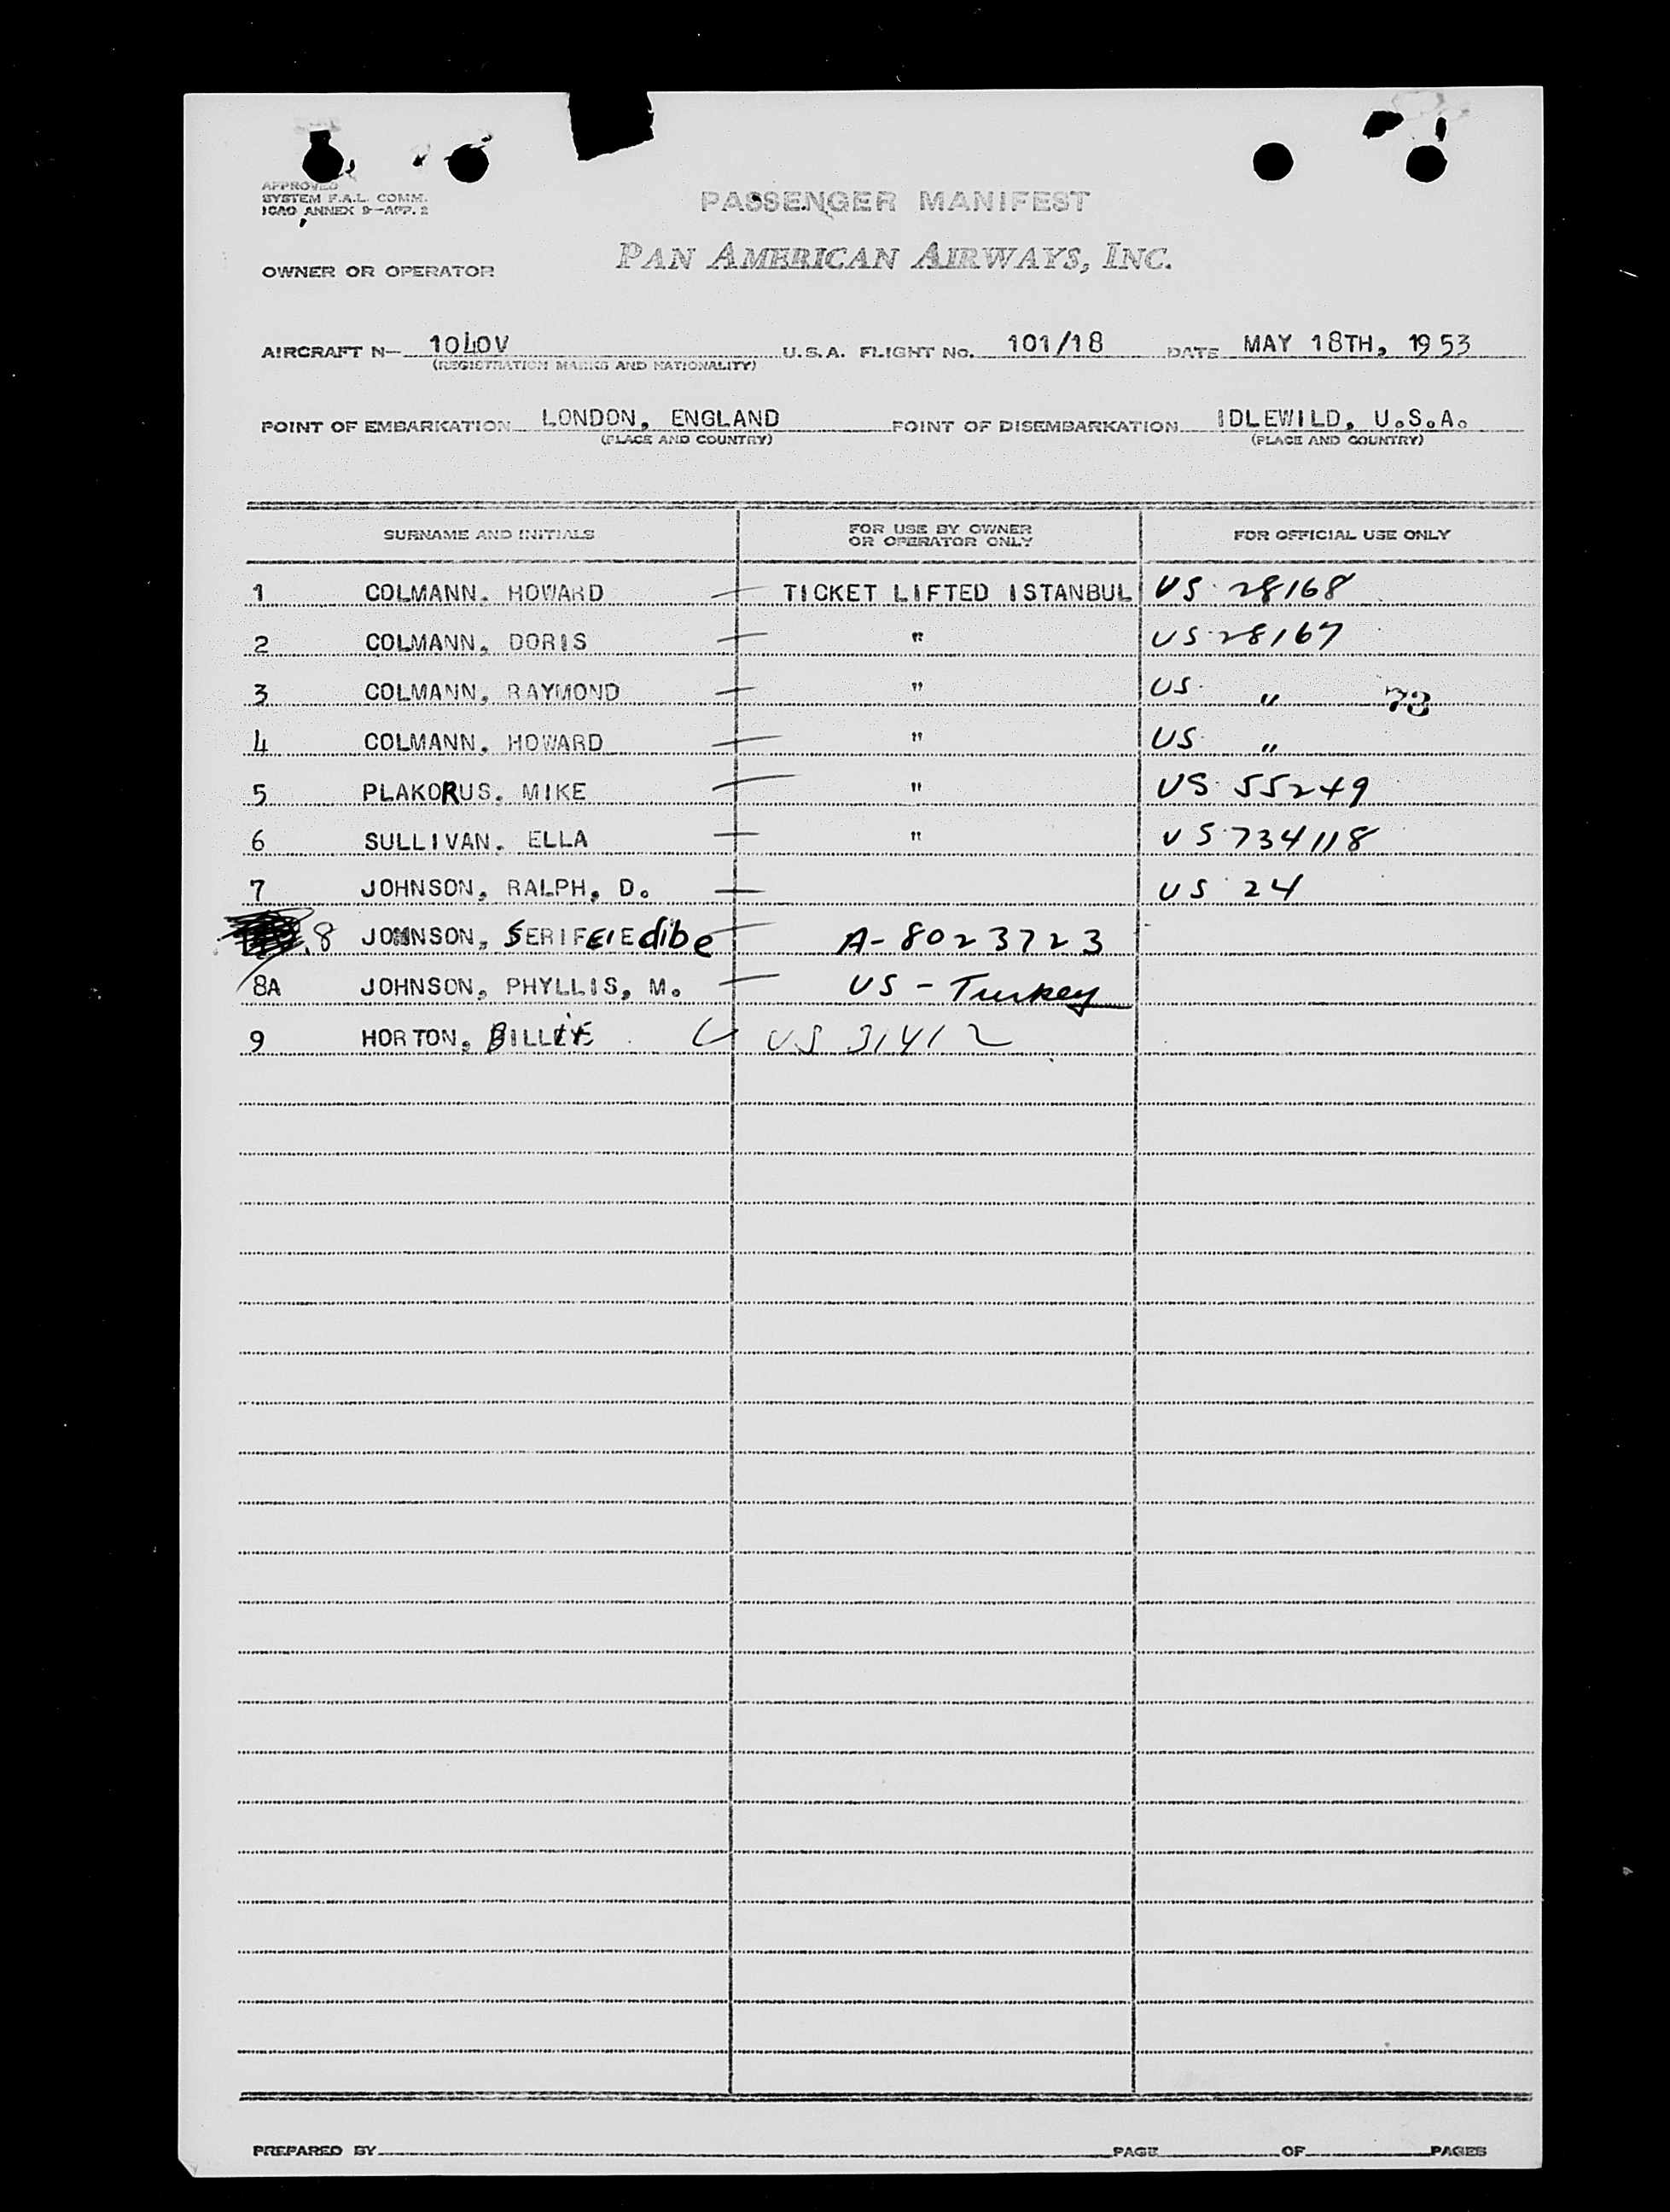 APPROVED
SYSTEM F.A.L. COMM.
ICAO ANNEX 9—APP. 2
PASSENGER MANIFEST
OWNER OR OPERATOR PAN AMERICAN AIRWAYS, INC.
AIRCRAFT N— 1040V U.S.A. FLIGHT NO. 101/18 DATE MAY 18TH, 1953
(REGISTRATION MARKS AND NATIONALITY)
POINT OF EMBARKATION LONDON, ENGLAND POINT OF DISEMBARKATION IDLEWILD, U.S.A.
(PLACE AND COUNTRY) (PLACE AND COUNTRY)
SURNAME AND INITIALS FOR USE BY OWNER OR OPERATOR ONLY FOR OFFICIAL USE ONLY
1 COLMANN, HOWARD — TICKET LIFTED ISTANBUL US 28168
2 COLMANN, DORIS — " US 28167
3 COLMANN, RAYMOND — " US " 73
4 COLMANN, HOWARD — " US "
5 PLAKORUS, MIKE — " US 55249
6 SULLIVAN, ELLA — " US 734118
7 JOHNSON, RALPH, D. — US 24
8 JOHNSON, SERIFE edibe — A-8023723
8A JOHNSON, PHYLLIS, M. — US - Turkey
9 HORTON, BILLIE US 31412
PREPARED BY PAGE OF PAGES